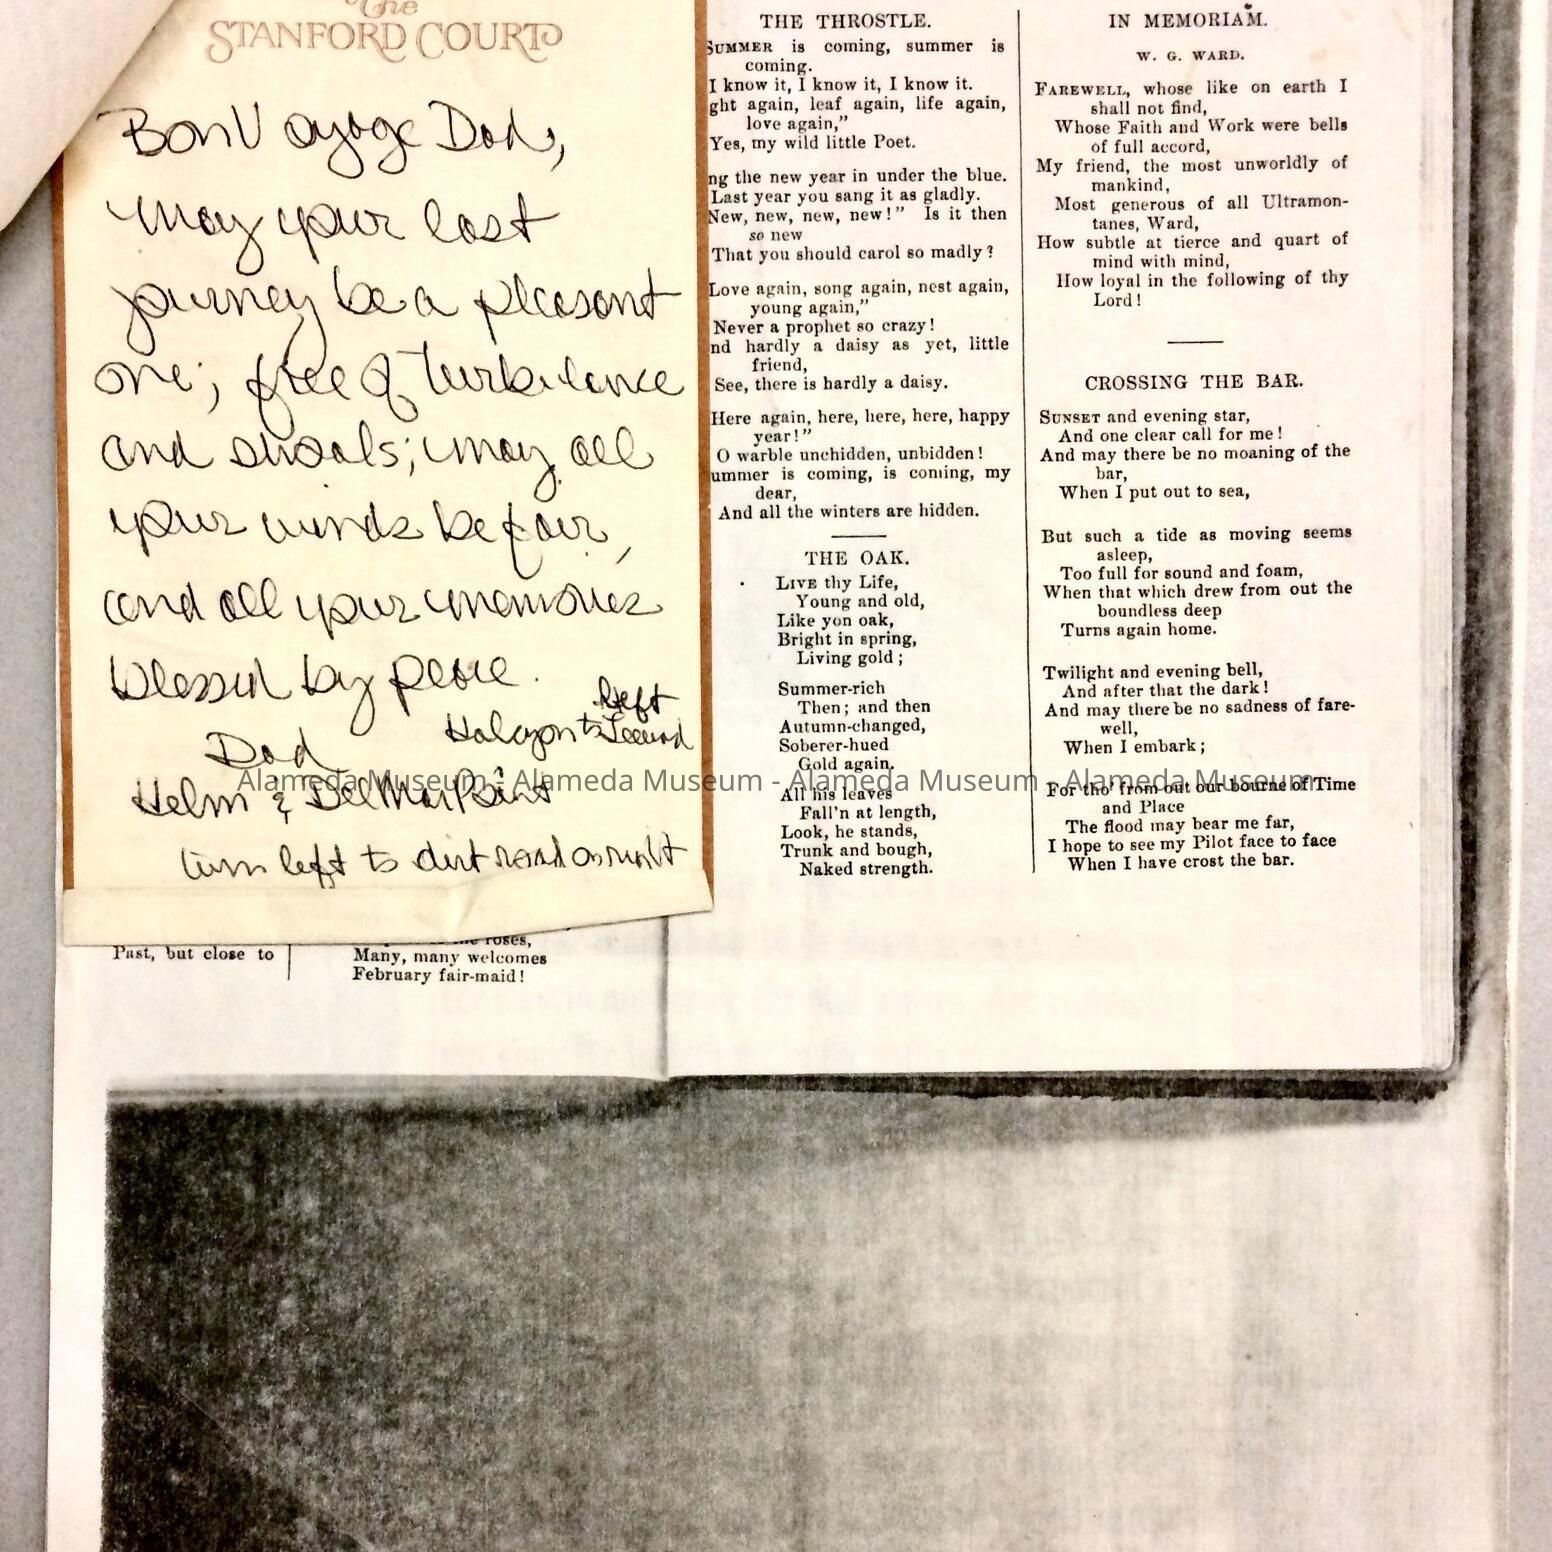 The
STANFORD COURT
Bon Voyage Dad,
may your last
journey be a pleasant
one; free of turbulence
and shoals; may all
your winds be fair,
and all your memories
blessed by peace.
left
Halcyon to Second
Dad
Helm & Del Mar Point
turn left to dirt road on right
Past, but close to
the roses,
Many, many welcomes
February fair-maid!
THE THROSTLE.
SUMMER is coming, summer is
coming.
I know it, I know it, I know it.
ght again, leaf again, life again,
love again,”
Yes, my wild little Poet.
ng the new year in under the blue.
Last year you sang it as gladly.
New, new, new, new!” Is it then
so new
That you should carol so madly?
Love again, song again, nest again,
young again,”
Never a prophet so crazy!
nd hardly a daisy as yet, little
friend,
See, there is hardly a daisy.
Here again, here, here, here, happy
year!”
O warble unchidden, unbidden!
ummer is coming, is coming, my
dear,
And all the winters are hidden.
THE OAK.
LIVE thy Life,
Young and old,
Like yon oak,
Bright in spring,
Living gold;
Summer-rich
Then; and then
Autumn-changed,
Soberer-hued
Gold again.
All his leaves
Fall'n at length,
Look, he stands,
Trunk and bough,
Naked strength.
IN MEMORIAM.
W. G. WARD.
FAREWELL, whose like on earth I
shall not find,
Whose Faith and Work were bells
of full accord,
My friend, the most unworldly of
mankind,
Most generous of all Ultramon-
tanes, Ward,
How subtle at tierce and quart of
mind with mind,
How loyal in the following of thy
Lord!
CROSSING THE BAR.
SUNSET and evening star,
And one clear call for me!
And may there be no moaning of the
bar,
When I put out to sea,
But such a tide as moving seems
asleep,
Too full for sound and foam,
When that which drew from out the
boundless deep
Turns again home.
Twilight and evening bell,
And after that the dark!
And may there be no sadness of fare-
well,
When I embark;
For tho' from out our bourne of Time
and Place
The flood may bear me far,
I hope to see my Pilot face to face
When I have crost the bar.
Alameda Museum - Alameda Museum - Alameda Museum - Alameda Museum